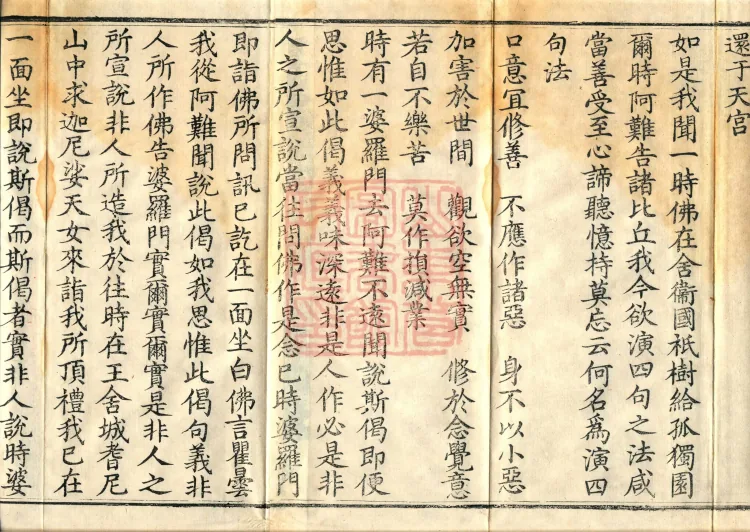 還于天宮
如是我聞一時佛在舍衞國祇樹給孤獨園
爾時阿難告諸比丘我今欲演四句之法咸
當善受至心諦聽憶持莫忘云何名為演四
句法
口意宜修善　不應作諸惡　身不以小惡
加害於世間　觀欲空無實　修於念覺意
若自不樂苦　莫作損減業
時有一婆羅門去阿難不遠聞說斯偈即便
思惟如此偈義義味深遠非是人作必是非
人之所宣說當往問佛作是念已時婆羅門
即詣佛所問訊已訖在一面坐白佛言瞿曇
我從阿難聞說此偈如我思惟此偈句義非
人所作佛告婆羅門實爾實爾實是非人之
所宣說非人所造我於往時在王舍城耆尼
山中求迦尼娑天女來詣我所頂禮我已在
一面坐即說斯偈而斯偈者實非人說時婆